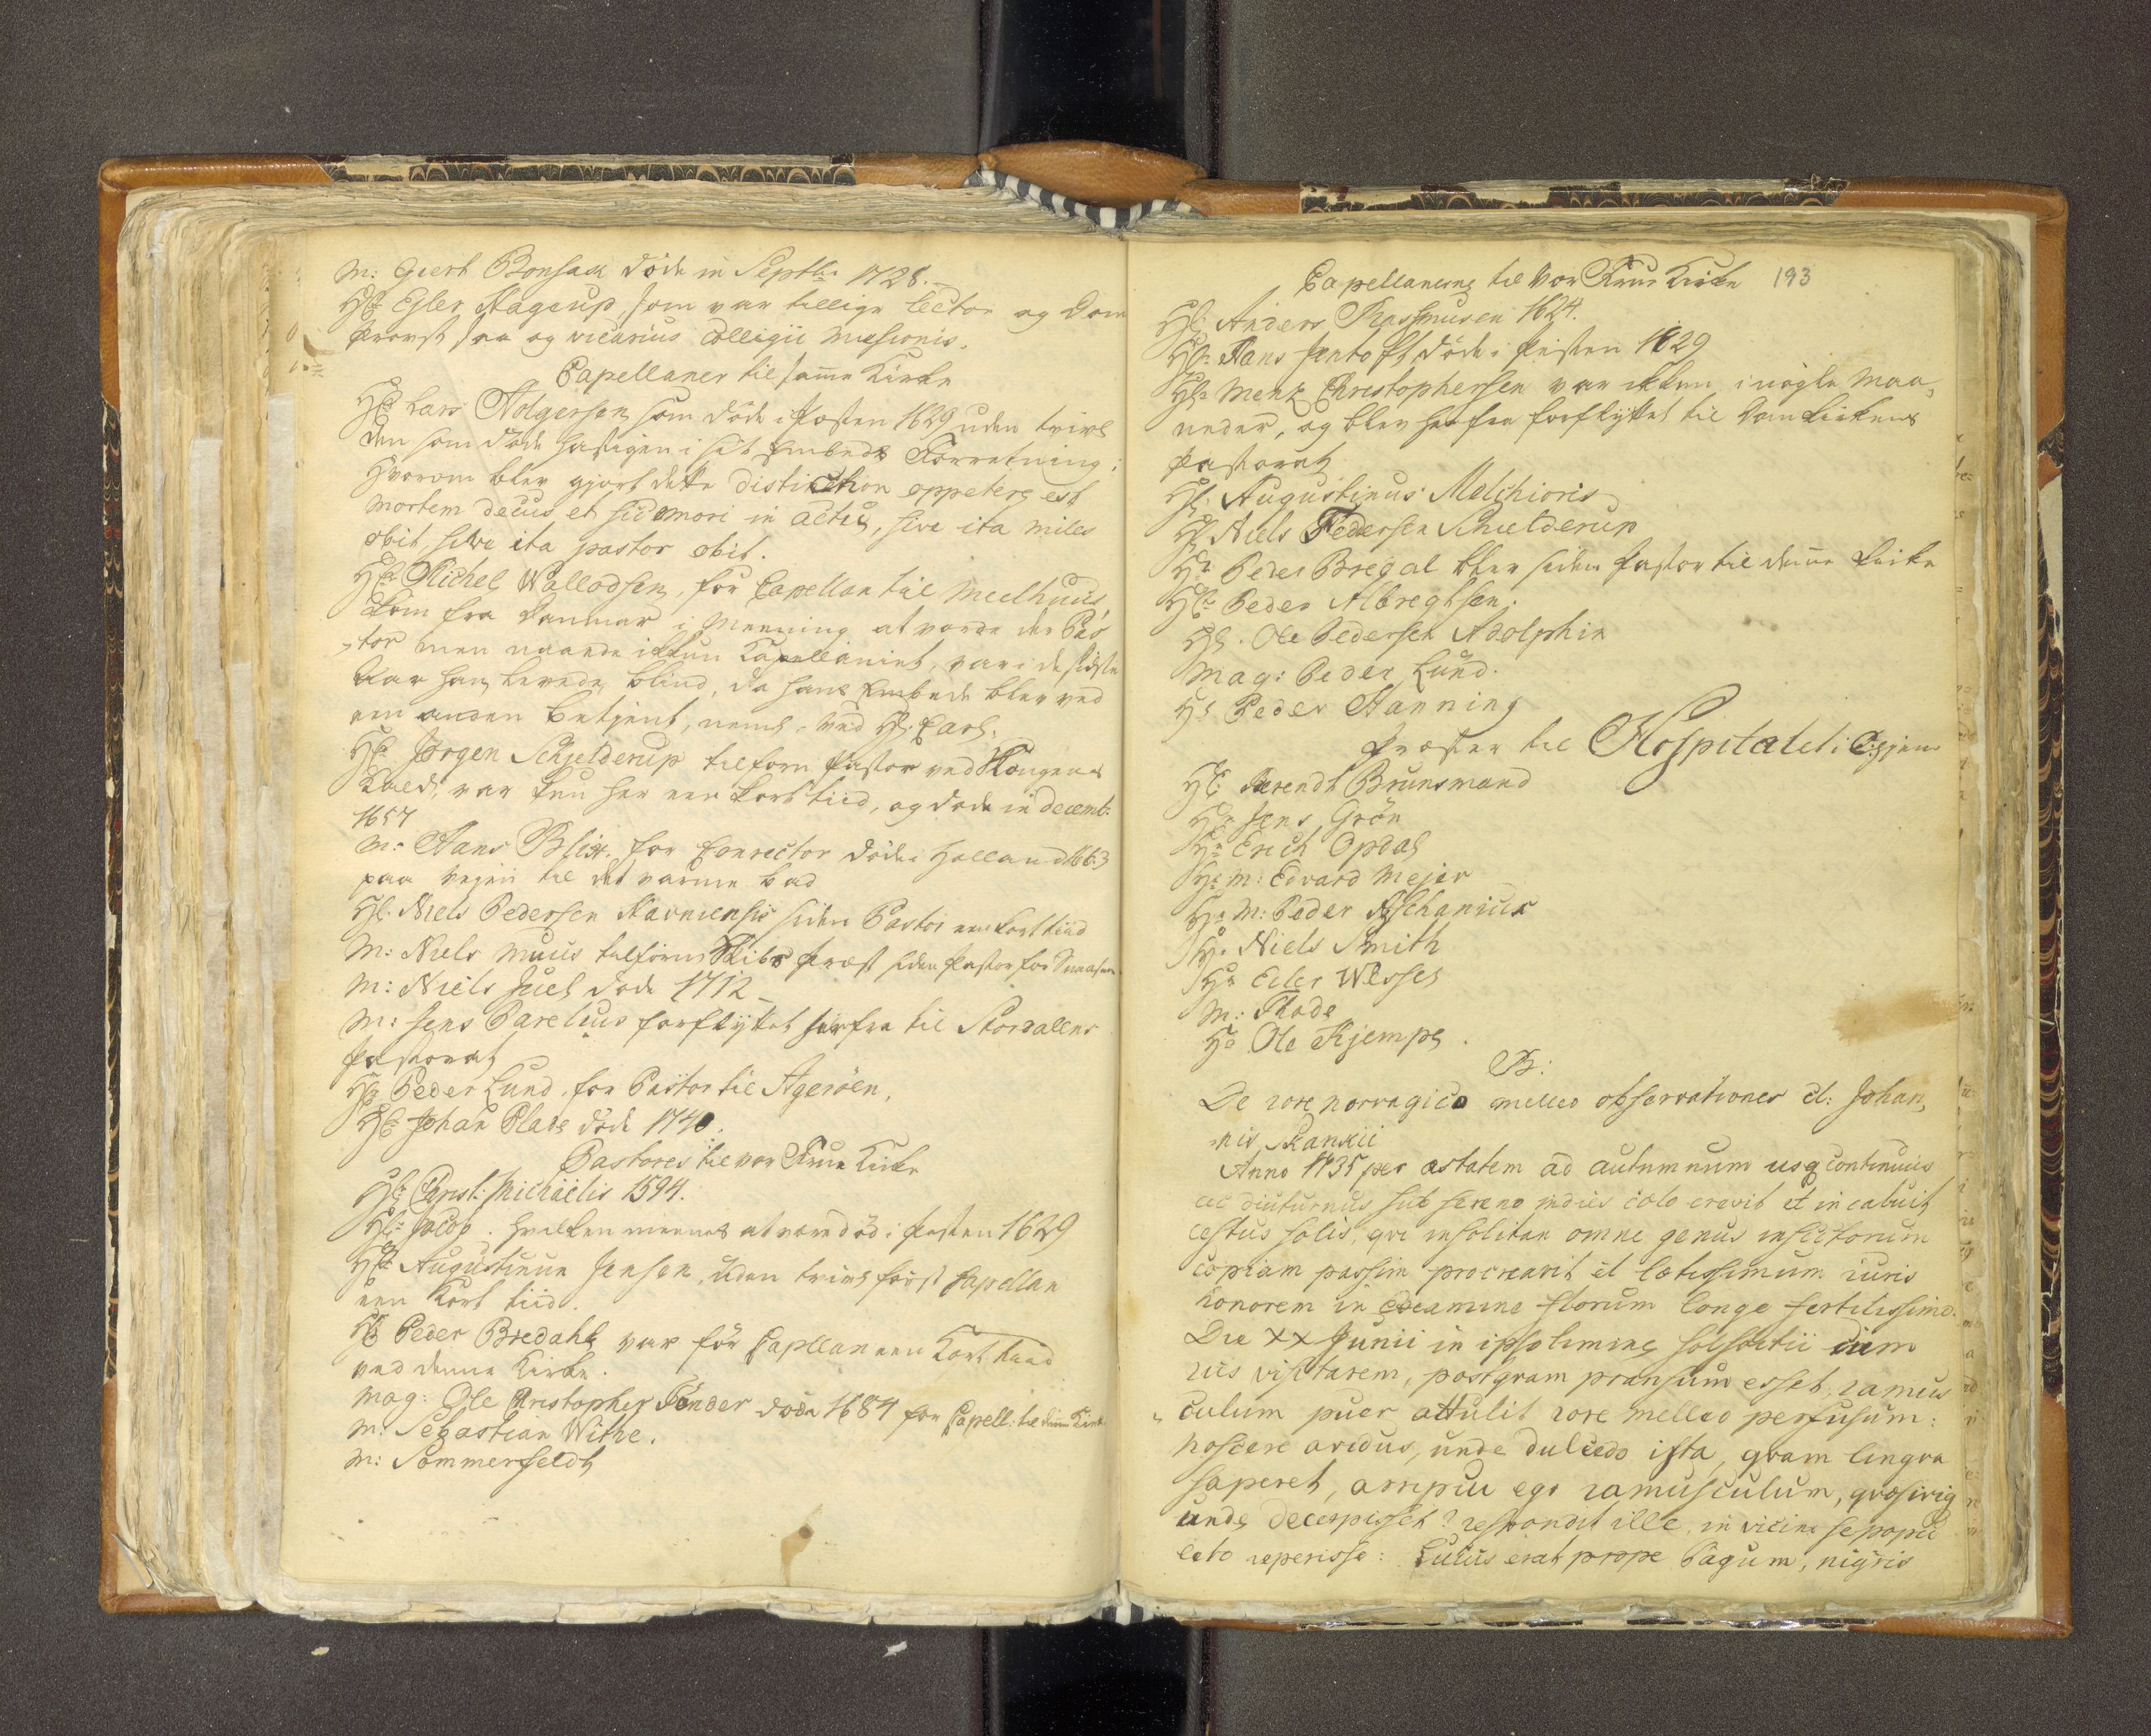 M: Geert Bonsach døde in Septbr: 1728.
Hr: Eyler Hagerup, som var tillige Lector og Dom
Provst saa og vicarius Collegii missionis.
Capellaner til samme Kirke
Hr: Lars Holgersen som døde i Pesten 1629 uden tvivl
den som døde hastigen i sit Embeds Forretning;
hvorom blev gjort dette distichon oppetere est
mortem decus et sic emori in actu, sive ita miles
obit sive ita pastor obit.
Hr: Michel Wallodsen, før Capellan til Meelhuus,
kom fra Danmar i Meening at vorde der Pas
-tor men naaede ikkun Capellaniet, var i de sidste
Aar han levede, blind, da hans Embede blev ved
een anden betjent, neml: ved Hr: Carl.
Hr: Jørgen Schjelderup tilforn Pastor ved Kongens
var kun her een kort tiid, og døde in Decemb:
1657
M: Hans Blix, før Conrector døde i Holland 1663
paa veyen til det varme bad
Hr: Niels Pedersen Harniensis siden Pastor een kort tiid
M: Niels Muus tilforn Skibs Præst siden Pastor for Snaasen
M: Niels Juel døde 1712
M: Jens Parelius forflyttet herfra til Stordalens
Pastorat
Hr: Peder Lund, før Pastor til Agerøen,
Hr: Johan Plade døde 1740.
Pastores til vor Frue Kirke
Hr: Christ: Michaëlis 1594.
Hr: Jacob. hvilken meenes at være død i Pesten 1629
Hr: Augustinun Jensen, uden tvivl først Capellan
een kort tiid.
Hr: Peder Bredahl var før Capellan een kort tiid
ved denne Kirke.
Mag: Ole Christopher Tønder døde 1684 før Capell: til denne Kirke
M: Sebastian Withe.
M: Sommerfeldt
193
Capellanerne til Vor Frue Kirke
Hr: Anders Rasmusen 1624.
Hr: Hans Jentoft, døde i Pesten 1629
Hr: Mentz Christophersen var ikkun i nogle Maa-
neder, og blev herfra forflyttet til Domkirkens
Pastorat
Hr: Augustinus Melchioris
Hr: Niels Pedersen Schielderup
Hr: Peder Bregal blev siden Pastor til denne Kirke
Hr: Peder Albreghsen.
Hr: Ole Pedersen Adolphin
Mag: Peder Lund.
Hr: Peder Hanning
Præster til Hospitalet i
Hr: Berendt Brunsmand
Hr: Jens Grön
Hr: Erich Opdal
Hr: M: Edvard Mejer
Hr: M: Peder Aschanius
Hr: Niels Smith
Hr: Eiler Wessel
M: Thode
Hr: Ole Kjempe.
De rore norvagico melleo observationes cl: Johan,
-nis Skankii
Anno 1735 per æstatem ad autumnum usq continuus
ac diuturnus sub sereno indies cœlo crevit et incaluit
æstus solis, qvi insolitan omne genus insectorum
copiam passim procreavit et lætissimum ruris
honorem in examine florum longe fertilissimo.
Die XX Junii in ipso limine solsoitii dum
rus visitarem, postqvam pransum esset, ramus
-culum puer attulit rore melleo perfusum:
noscere avidus, unde dulcedo ista, qvam lingva
saperet, arripui ego ramusculum, qvæsivig
unde decerpisset? respondit ille, in vicino se popu
leto reperisse: Lucus erat prope Pagum, nigris